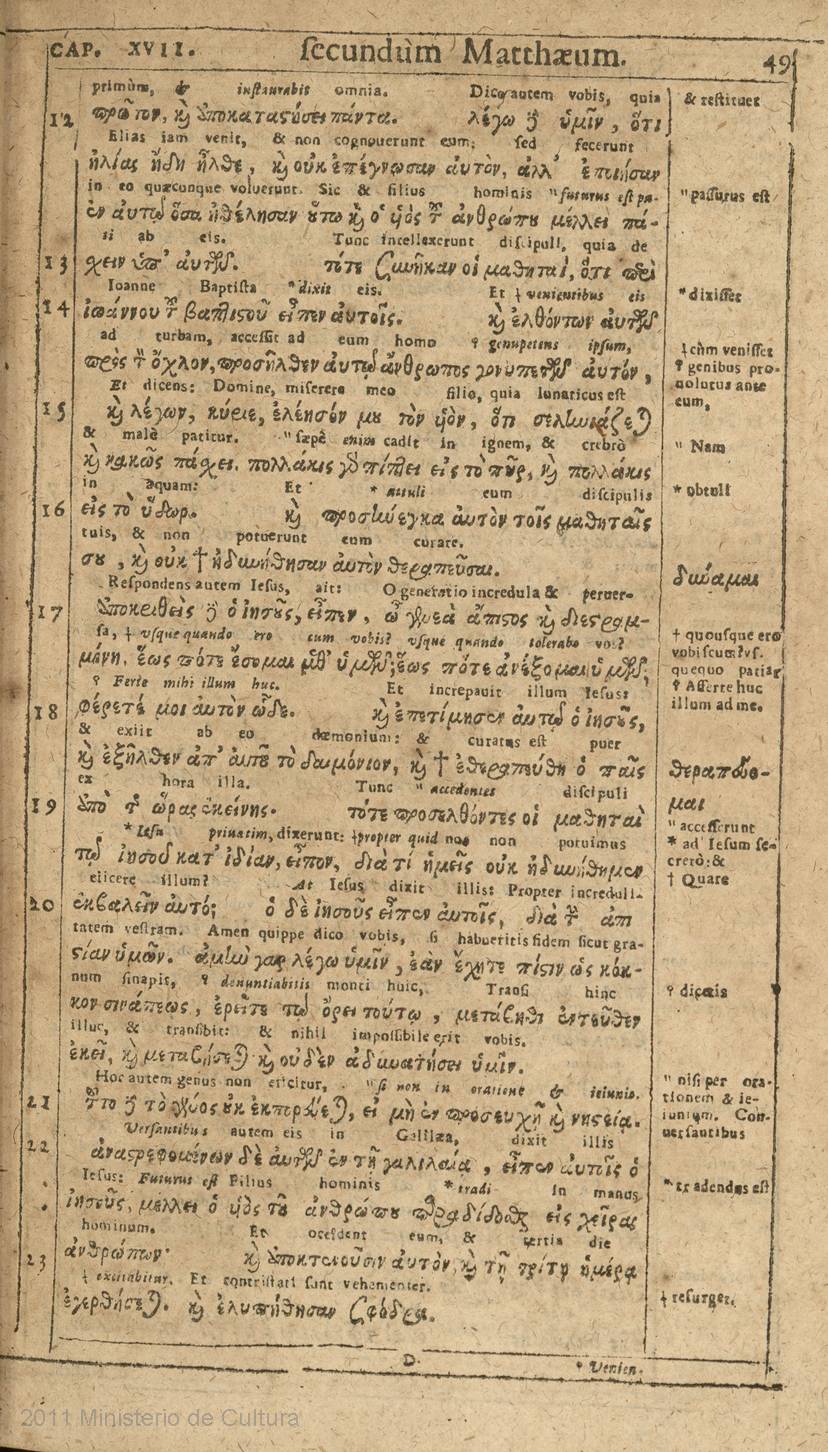 CAP. XVII. secundùm Matthæum. 49
primùm, & instaurabit omnia. Dico autem vobis, quia & restituet
12 πρῶτον, καὶ ἀποκαταστήσει πάντα. λέγω δὲ ὑμῖν, ὅτι
Elias iam venit, & non cognouerunt eum; sed fecerunt
ἠλίας ἤδη ἦλθε, καὶ οὐκ ἐπέγνωσαν αὐτὸν, ἀλλ' ἐποίησαν
in eo quæcunque voluerunt. Sic & filius hominis "futurus est pa- "passurus est
ἐν αὐτῷ ὅσα ἠθέλησαν οὕτω καὶ ὁ υἱὸς τοῦ ἀνθρώπου μέλλει πά-
ti ab eis. Tunc intellexerunt discipuli, quia de
13 χειν ὑπ' αὐτῶν. τότε συνῆκαν οἱ μαθηταὶ, ὅτι περὶ
Ioanne Baptista *dixit eis. Et ɫ venientibus eis *dixisset
14 ἰωάννου τοῦ βαπτιστοῦ εἶπεν αὐτοῖς. καὶ ἐλθόντων αὐτῶν
ad turbam, accessit ad eum homo ꝉ genupetens ipsum, ɫcùm venisset
πρὸς τὸν ὄχλον, προσῆλθεν αὐτῷ ἄνθρωπος γονυπετῶν αὐτόν, ꝉ genibus pro-
Et dicens: Domine, miserere meo filio, quia lunaticus est uolutus ante
15 καὶ λέγων, κύριε, ἐλέησόν μου τὸν υἱὸν, ὅτι σεληνιάζεται eum,
& malè patitur. "sæpè enim cadit in ignem, & crebrò " Nam
καὶ κακῶς πάσχει. πολλάκις γὰρ πίπτει εἰς τὸ πῦρ, καὶ πολλάκις
in aquam: Et * attuli eum discipulis * obtuli
16 εἰς τὸ ὕδωρ. καὶ προσήνεγκα αὐτὸν τοῖς μαθηταῖς
tuis, & non potuerunt eum curare.
σου, καὶ οὐκ † ἠδυνήθησαν αὐτὸν θεραπεῦσαι. δύναμαι
Respondens autem Iesus, ait: O generatio incredula & peruer-
17 ἀποκριθεὶς δὲ ὁ ἰησοῦς, εἶπεν, ὦ γενεὰ ἄπιστος καὶ διεστραμ-
sa, ɫ vsque quando ero cum vobis? vsque quando tolerabo vos? † quousque ero vobiscum? vs.
μένη, ἕως πότε ἔσομαι μεθ' ὑμῶν; ἕως πότε ἀνέξομαι ὑμῶν; quequo patiar
ꝉ Ferte mihi illum huc. Et increpauit illum Iesus: ꝉ Afferte huc
18 φέρετέ μοι αὐτὸν ὧδε. καὶ ἐπετίμησεν αὐτῷ ὁ ἰησοῦς, illum ad me.
& exiit ab eo dæmonium: & curatus est puer
καὶ ἐξῆλθεν ἀπ' αὐτοῦ τὸ δαιμόνιον, καὶ † ἐθεραπεύθη ὁ παῖς θεραπεύο-
ex hora illa. Tunc "accedentes discipuli μαι
19 ἀπὸ τῆς ὥρας ἐκείνης. τότε προσελθόντες οἱ μαθηταὶ "accesserunt
*Iesu priuatim, dixerunt: ɫpropter quid nos non potuimus * ad Iesum se-
τῷ ἰησοῦ κατ' ἰδίαν, εἶπον, διὰ τί ἡμεῖς οὐκ ἠδυνήθημεν cretò: &
eiicere illum? At Iesus dixit illis: Propter increduli- † Quare
20 ἐκβαλεῖν αὐτό; ὁ δὲ ἰησοῦς εἶπεν αὐτοῖς, διὰ τὴν ἀπι
tatem vestram. Amen quippe dico vobis, si habueritis fidem sicut gra-
στίαν ὑμῶν. ἀμὴν γὰρ λέγω ὑμῖν, ἐὰν ἔχητε πίστιν ὡς κόκ-
num sinapis, ꝉ denuntiabitis monti huic, Transi hinc ꝉ dicetis
κον σινάπεως, ἐρεῖτε τῷ ὄρει τούτῳ, μετάβηθι ἐντεῦθεν
illuc, & transibit: & nihil impossibile erit vobis.
ἐκεῖ, καὶ μεταβήσεται· καὶ οὐδὲν ἀδυνατήσει ὑμῖν.
Hoc autem genus non eiicitur, "si non in oratione & ieiunio. "nisi per ora-
21 τοῦτο δὲ τὸ γένος οὐκ ἐκπορεύεται, εἰ μὴ ἐν προσευχῇ καὶ νηστεία. tionem & ie-iunium. Con-
Versantibus autem eis in Galilæa, dixit illis uersantibus
22 ἀναστρεφομένων δὲ αὐτῶν ἐν τῇ γαλιλαίᾳ, εἶπεν αὐτοῖς ὁ
Iesus: Futurus est Filius hominis *tradi in manus *tradendus est
ἰησοῦς, μέλλει ὁ υἱὸς τοῦ ἀνθρώπου παραδίδοσθαι εἰς χεῖρας
hominum. Et occident eum, & tertia die
23 ἀνθρώπων· καὶ ἀποκτενοῦσιν αὐτὸν, καὶ τῇ τρίτῃ ἡμέρᾳ
ɫ excitabitur. Et contristati sunt vehementer. ɫ resurget.
ἐγερθήσεται. καὶ ἐλυπήθησαν σφόδρα.
D * Venien-
2011 Ministerio de Cultura